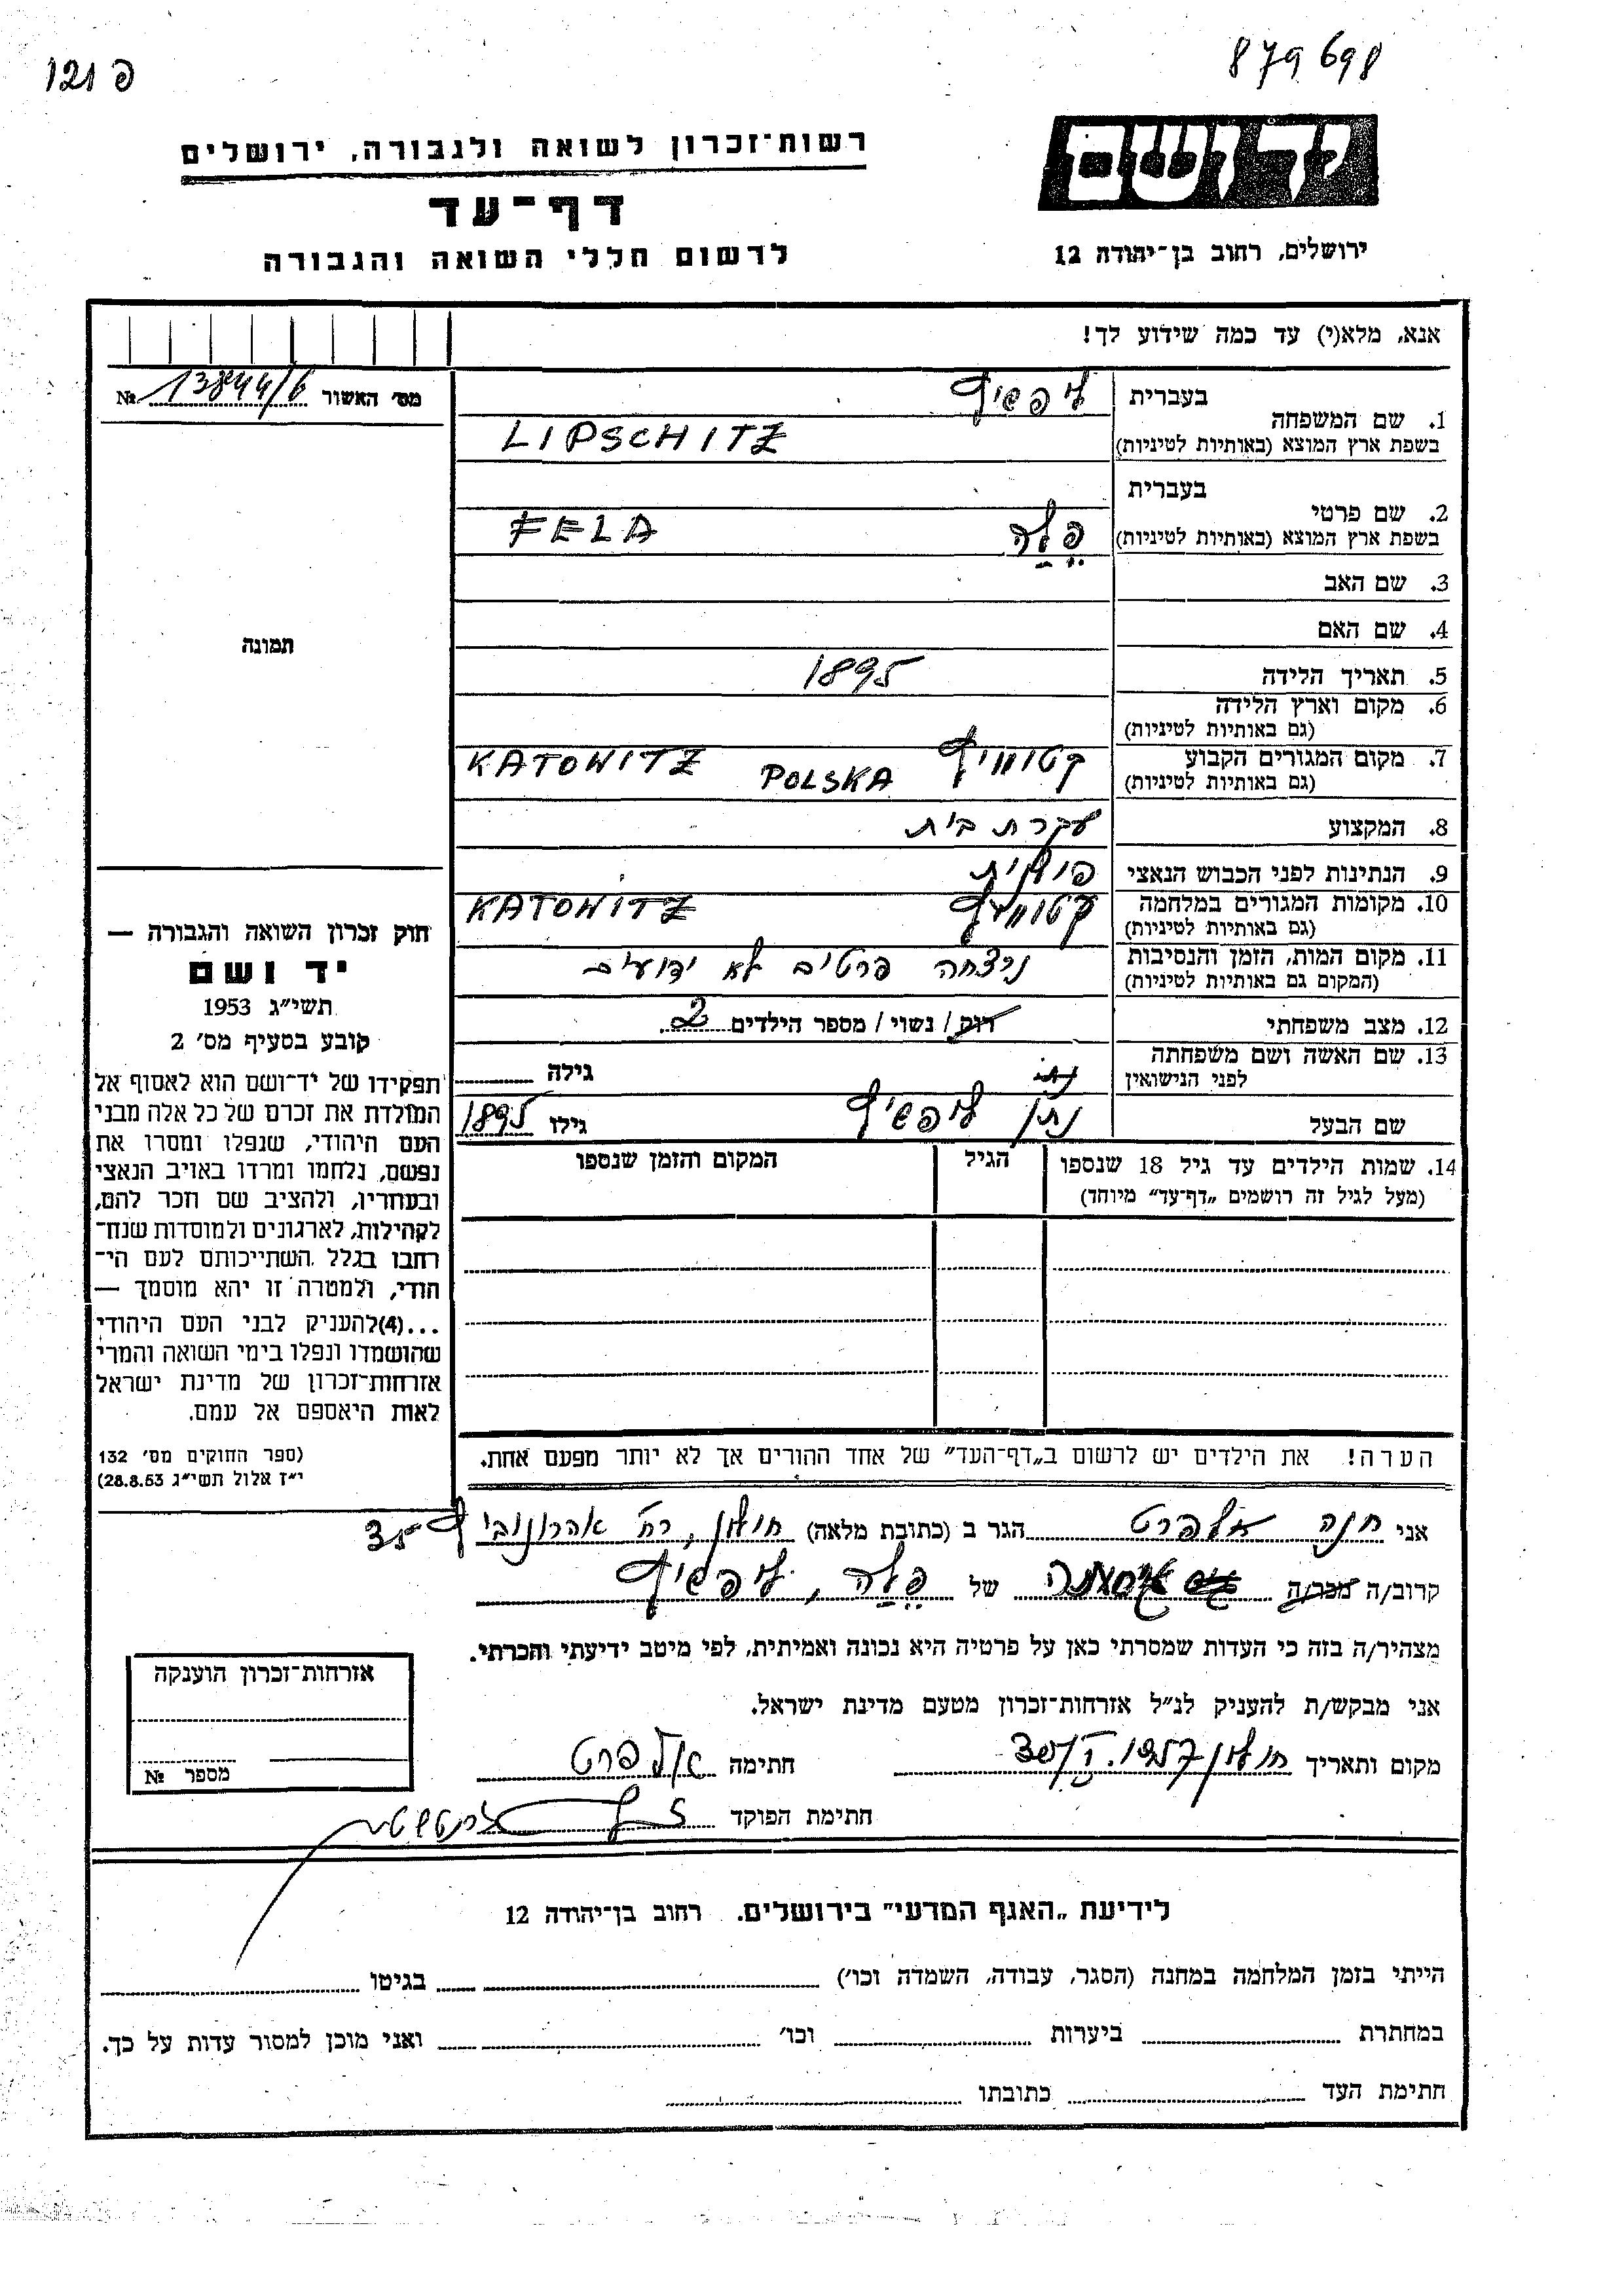 פ 121
879698
יד ושם
רשות־זכרון לשואה ולגבורה, ירושלים
דף־עד
לרשום חללי השואה והגבורה
ירושלים, רחוב בן־יהודה 12
אנא, מלא(י) עד כמה שידוע לך!
מס׳ האשור 13844/6 №
1. שם המשפחה
בעברית ליפשיץ
בשפת ארץ המוצא (באותיות לטיניות) LIPSCHITZ
2. שם פרטי
בעברית
בשפת ארץ המוצא (באותיות לטיניות) פֶלַה FELA
3. שם האב
4. שם האם
תמונה
5. תאריך הלידה 1895
6. מקום וארץ הלידה
(גם באותיות לטיניות)
7. מקום המגורים הקבוע קטווויץ POLSKA KATOWITZ
(גם באותיות לטיניות)
8. המקצוע עקרת בית
9. הנתינות לפני הכבוש הנאצי פולנית
10. מקומות המגורים במלחמה קטווויץ KATOWITZ
(גם באותיות לטיניות)
11. מקום המות, הזמן והנסיבות נרצחה פרטים לא ידועים
(המקום גם באותיות לטיניות)
12. מצב משפחתי רוק / נשוי / מספר הילדים 2
13. שם האשה ושם משפחתה
לפני הנישואין גילה
שם הבעל נתן ליפשיץ גילו 1895
14. שמות הילדים עד גיל 18 שנספו הגיל המקום והזמן שנספו
(מעל לגיל זה רושמים „דף־עד” מיוחד)
הערה! את הילדים יש לרשום ב„דף־העד” של אחד ההורים אך לא יותר מפעם אחת.
חוק זכרון השואה והגבורה —
יד ושם
תשי״ג 1953
קובע בסעיף מס׳ 2
תפקידו של יד־ושם הוא לאסוף אל
המולדת את זכרם של כל אלה מבני
העם היהודי, שנפלו ומסרו את
נפשם, נלחמו ומרדו באויב הנאצי
ובעוזריו, ולהציב שם וזכר להם,
לקהילות, לארגונים ולמוסדות שנח־
רבו בגלל השתייכותם לעם הי־
הודי, ולמטרה זו יהא מוסמך —
...(4)להעניק לבני העם היהודי
שהושמדו ונפלו בימי השואה והמרי
אזרחות־זכרון של מדינת ישראל
לאות היאספם אל עמם.
(ספר החוקים מס׳ 132
י״ז אלול תשי״ג 28.8.53)
אני חנה אלפרט הגר ב (כתובת מלאה) חולון, רח׳ אהרונוביץ 35
קרוב/ה מכר/ה של פֶלַה ליפשיץ
מצהיר/ה בזה כי העדות שמסרתי כאן על פרטיה היא נכונה ואמיתית, לפי מיטב ידיעתי והכרתי.
אני מבקש/ת להעניק לנ״ל אזרחות־זכרון מטעם מדינת ישראל.
מקום ותאריך חולון חתימה אלפרט
חתימת הפוקד
אזרחות־זכרון הוענקה
מספר №
לידיעת „האגף המדעי” בירושלים. רחוב בן־יהודה 12
הייתי בזמן המלחמה במחנה (הסגר, עבודה, השמדה וכו׳) בגיטו
במחתרת ביערות וכו׳ ואני מוכן למסור עדות על כך.
חתימת העד כתובתו